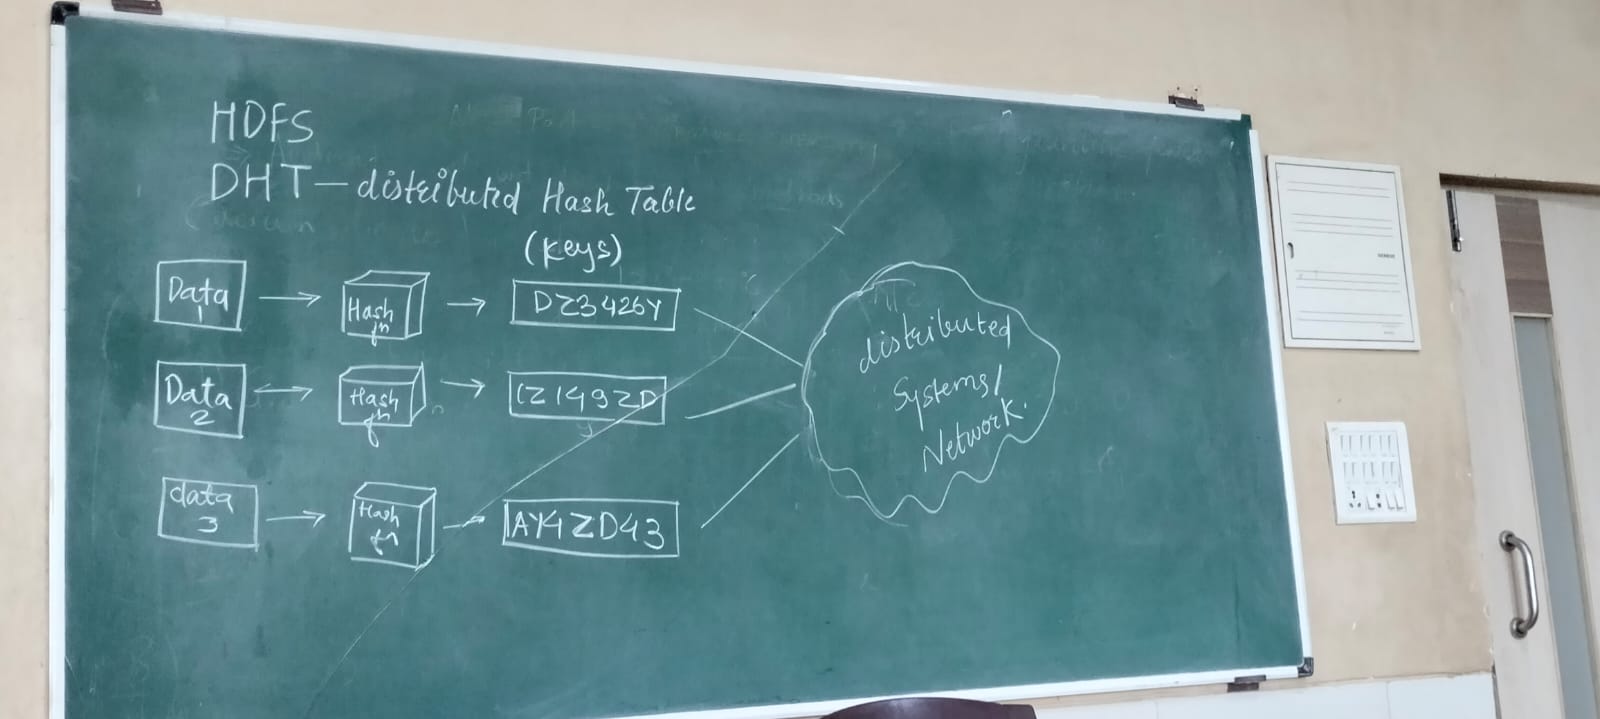 HDFS
DHT – distributed Hash Table
(Keys)
Data 1
Hash fn
DZ3426Y
Data 2
Hash fn
CZ149ZD
data 3
Hash fn
AY4ZD43
distributed
Systems/
Network.